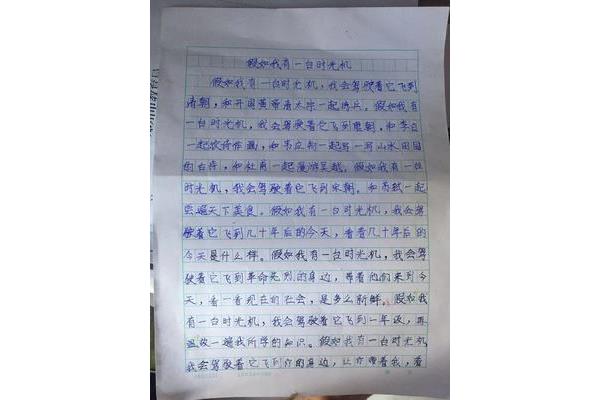 假如我有一台时光机
假如我有一台时光机，我会驾驶着它飞到
清朝，和开国黄帝清太宗一起得兵。假如我有
一台时光机，我会驾驶着它飞到唐朝，和李白
一起饮诗作画，和韦应物一起写一写山水田园
的古诗，和杜甫一起漫游吴越。假如我有一台
时光机，我会驾驶着它飞到宋朝。和苏轼一起
尝遍天下美食。假如我有一台时光机，我会驾
驶着它飞到几十年后的今天，看看几十年后的
今天是什么样。假如我有一台时光机，我会驾
驶着它飞到革命先列的身边，带着他们来到今
天，看一看现在的社会，是多么新鲜。假如我
有一台时光机，我会驾驶着它飞到一年级，再
温故一遍我所学的知识。假如我有一台时光机
我会驾驶着它飞到你的身边，让你带着我，看